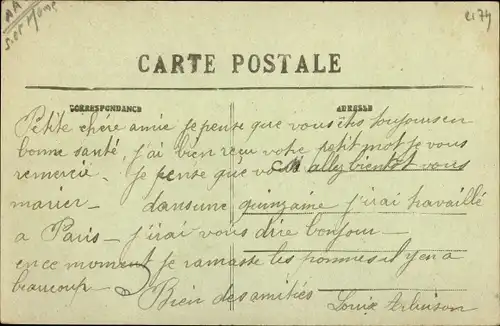 AA
S. et Marne
CARTE POSTALE
CORRESPONDANCE
ADRESSE
Petite chère amie je pense que vous êtes toujours en
bonne santé, j'ai bien reçu votre petit mot je vous
remercie. Je pense que vous allez bientôt vous
marier – dans une quinzaine j'irai travaillé
a Paris – j'irai vous dire bonjour –
en ce moment je ramasse les pommes il y en a
beaucoup – Bien des amitiés
Louise